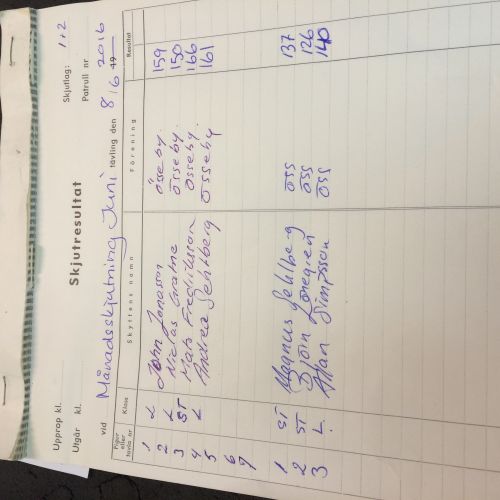 Skjutresultat
Upprop kl. Skjutlag: 1+2
Utgår kl. Patrull nr
vid Månadsskjutning Juni tävling den 8/6 19 2016
Figur eller tavla nr Klass Skyttens namn Förening Resultat
1 L John Jonasson Össeby. 159
2 L Niclas Össeby. 150
3 ST Mats Fredriksson Össeby. 166
4 L Andrea Sehlberg Össeby 161
5
6
7
1 ST Magnus Sehlberg ÖSS 137
2 ST Björn ÖSS 126
3 L. Allan Simpsson ÖSS 140